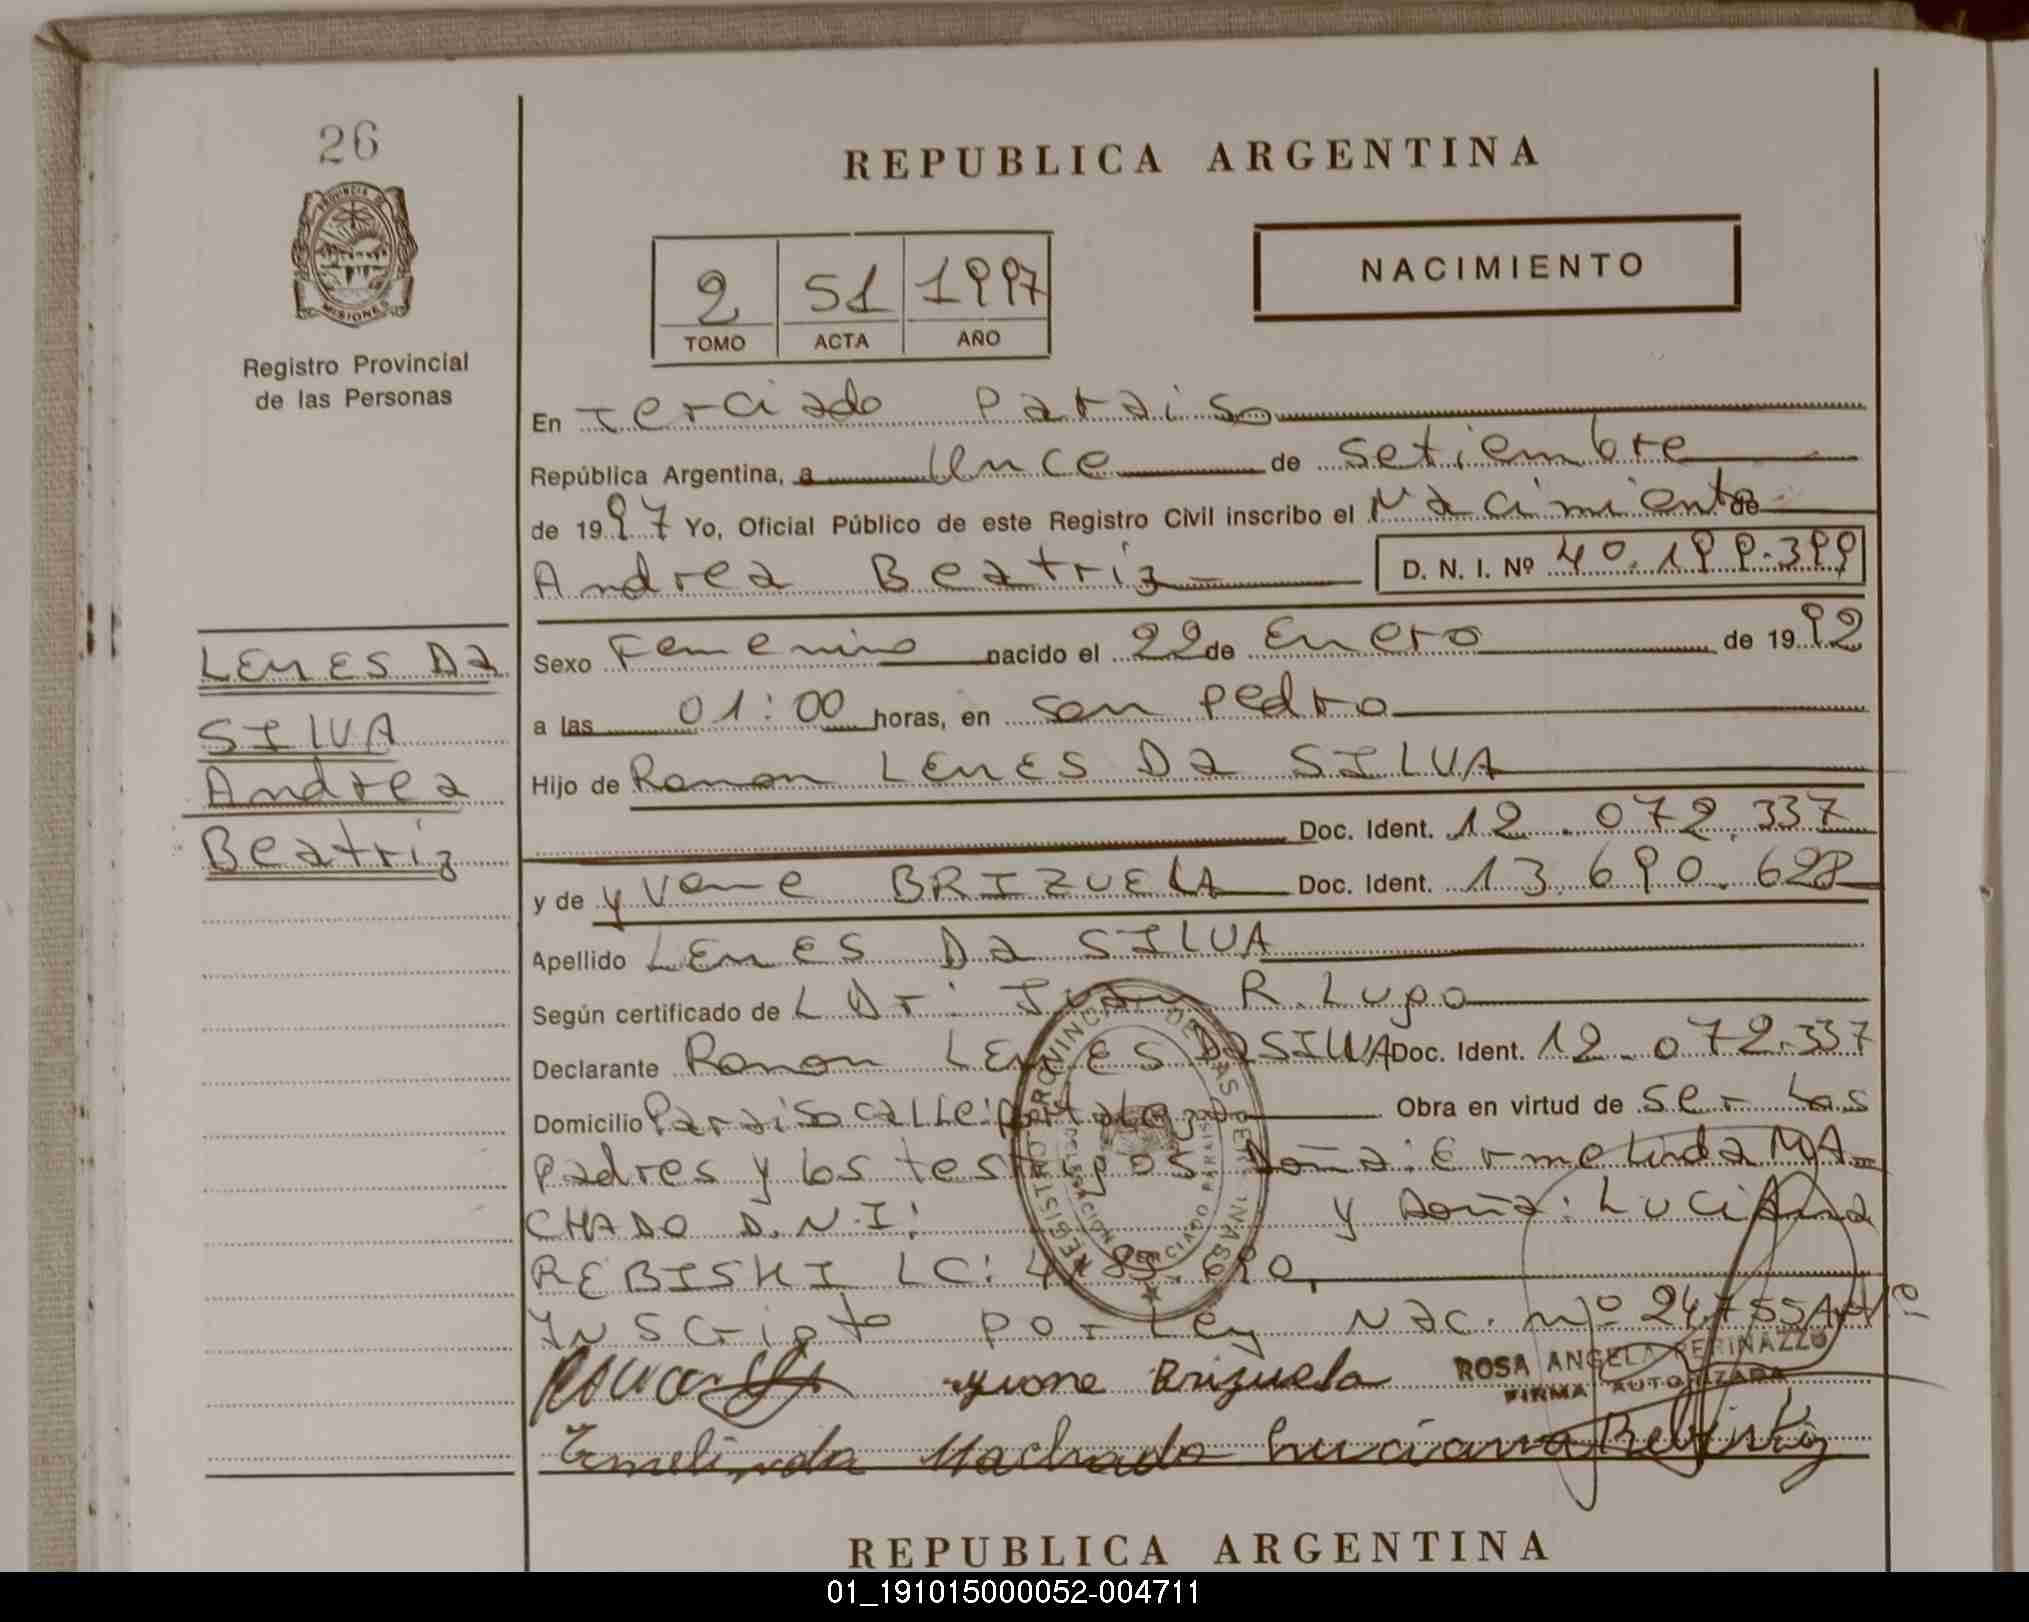 26
REPUBLICA ARGENTINA
PROVINCIA DE
MISIONES
Registro Provincial
de las Personas
2 51 1997
TOMO ACTA AÑO
NACIMIENTO
En Terciado Paraiso
República Argentina, a Once de Setiembre
de 1997 Yo, Oficial Público de este Registro Civil inscribo el Nacimiento de
Andrea Beatriz D. N. I. Nº 40.199.399
Sexo Femenino nacido el 22 de Enero de 1992
a las 01:00 horas, en San Pedro
Hijo de Ramon LEMES Da SILVA
Doc. Ident. 12.072.337
y de yvone BRIZUELA Doc. Ident. 13.690.628
Apellido LEMES Da SILVA
Según certificado de L Dr: Juan R. Lugo
Declarante Ramon LEMES Da SILVA Doc. Ident. 12.072.337
Domicilio Paraiso calle: Obra en virtud de Ser los
Padres y los testigos Doña: Ermelinda MA-
CHADO D.N.I: y Doña: Luciana
REBISKI LC: 690,
Inscripto por Ley Nac. nº 24.755
ROSA ANGELA PERINAZZO
FIRMA AUTORIZADA
yvone Brizuela
Ermelinda Machado Luciana Rebiski
LEMES Da
SILVA
Andrea
Beatriz
REGISTRO PROVINCIAL DE LAS PERSONAS
REPUBLICA ARGENTINA
01_191015000052-004711